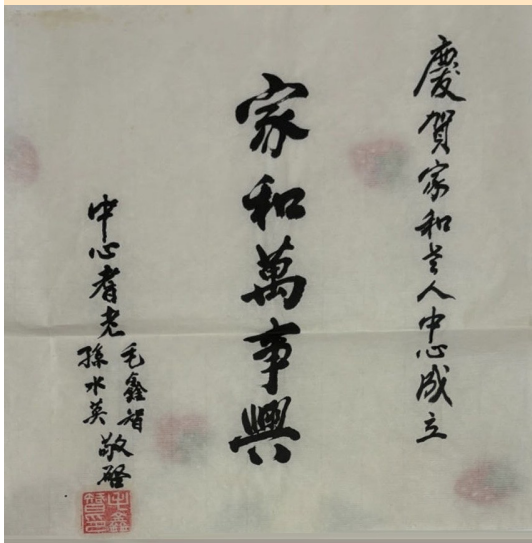 慶賀家和老人中心成立
家和萬事興
中心耆老
毛鑫
孫水英
敬